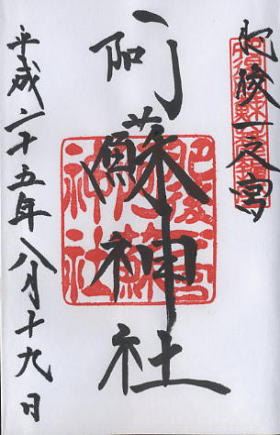 肥後一之宮
阿蘇神社
平成二十五年八月十九日
肥後一宮
阿蘇
神社